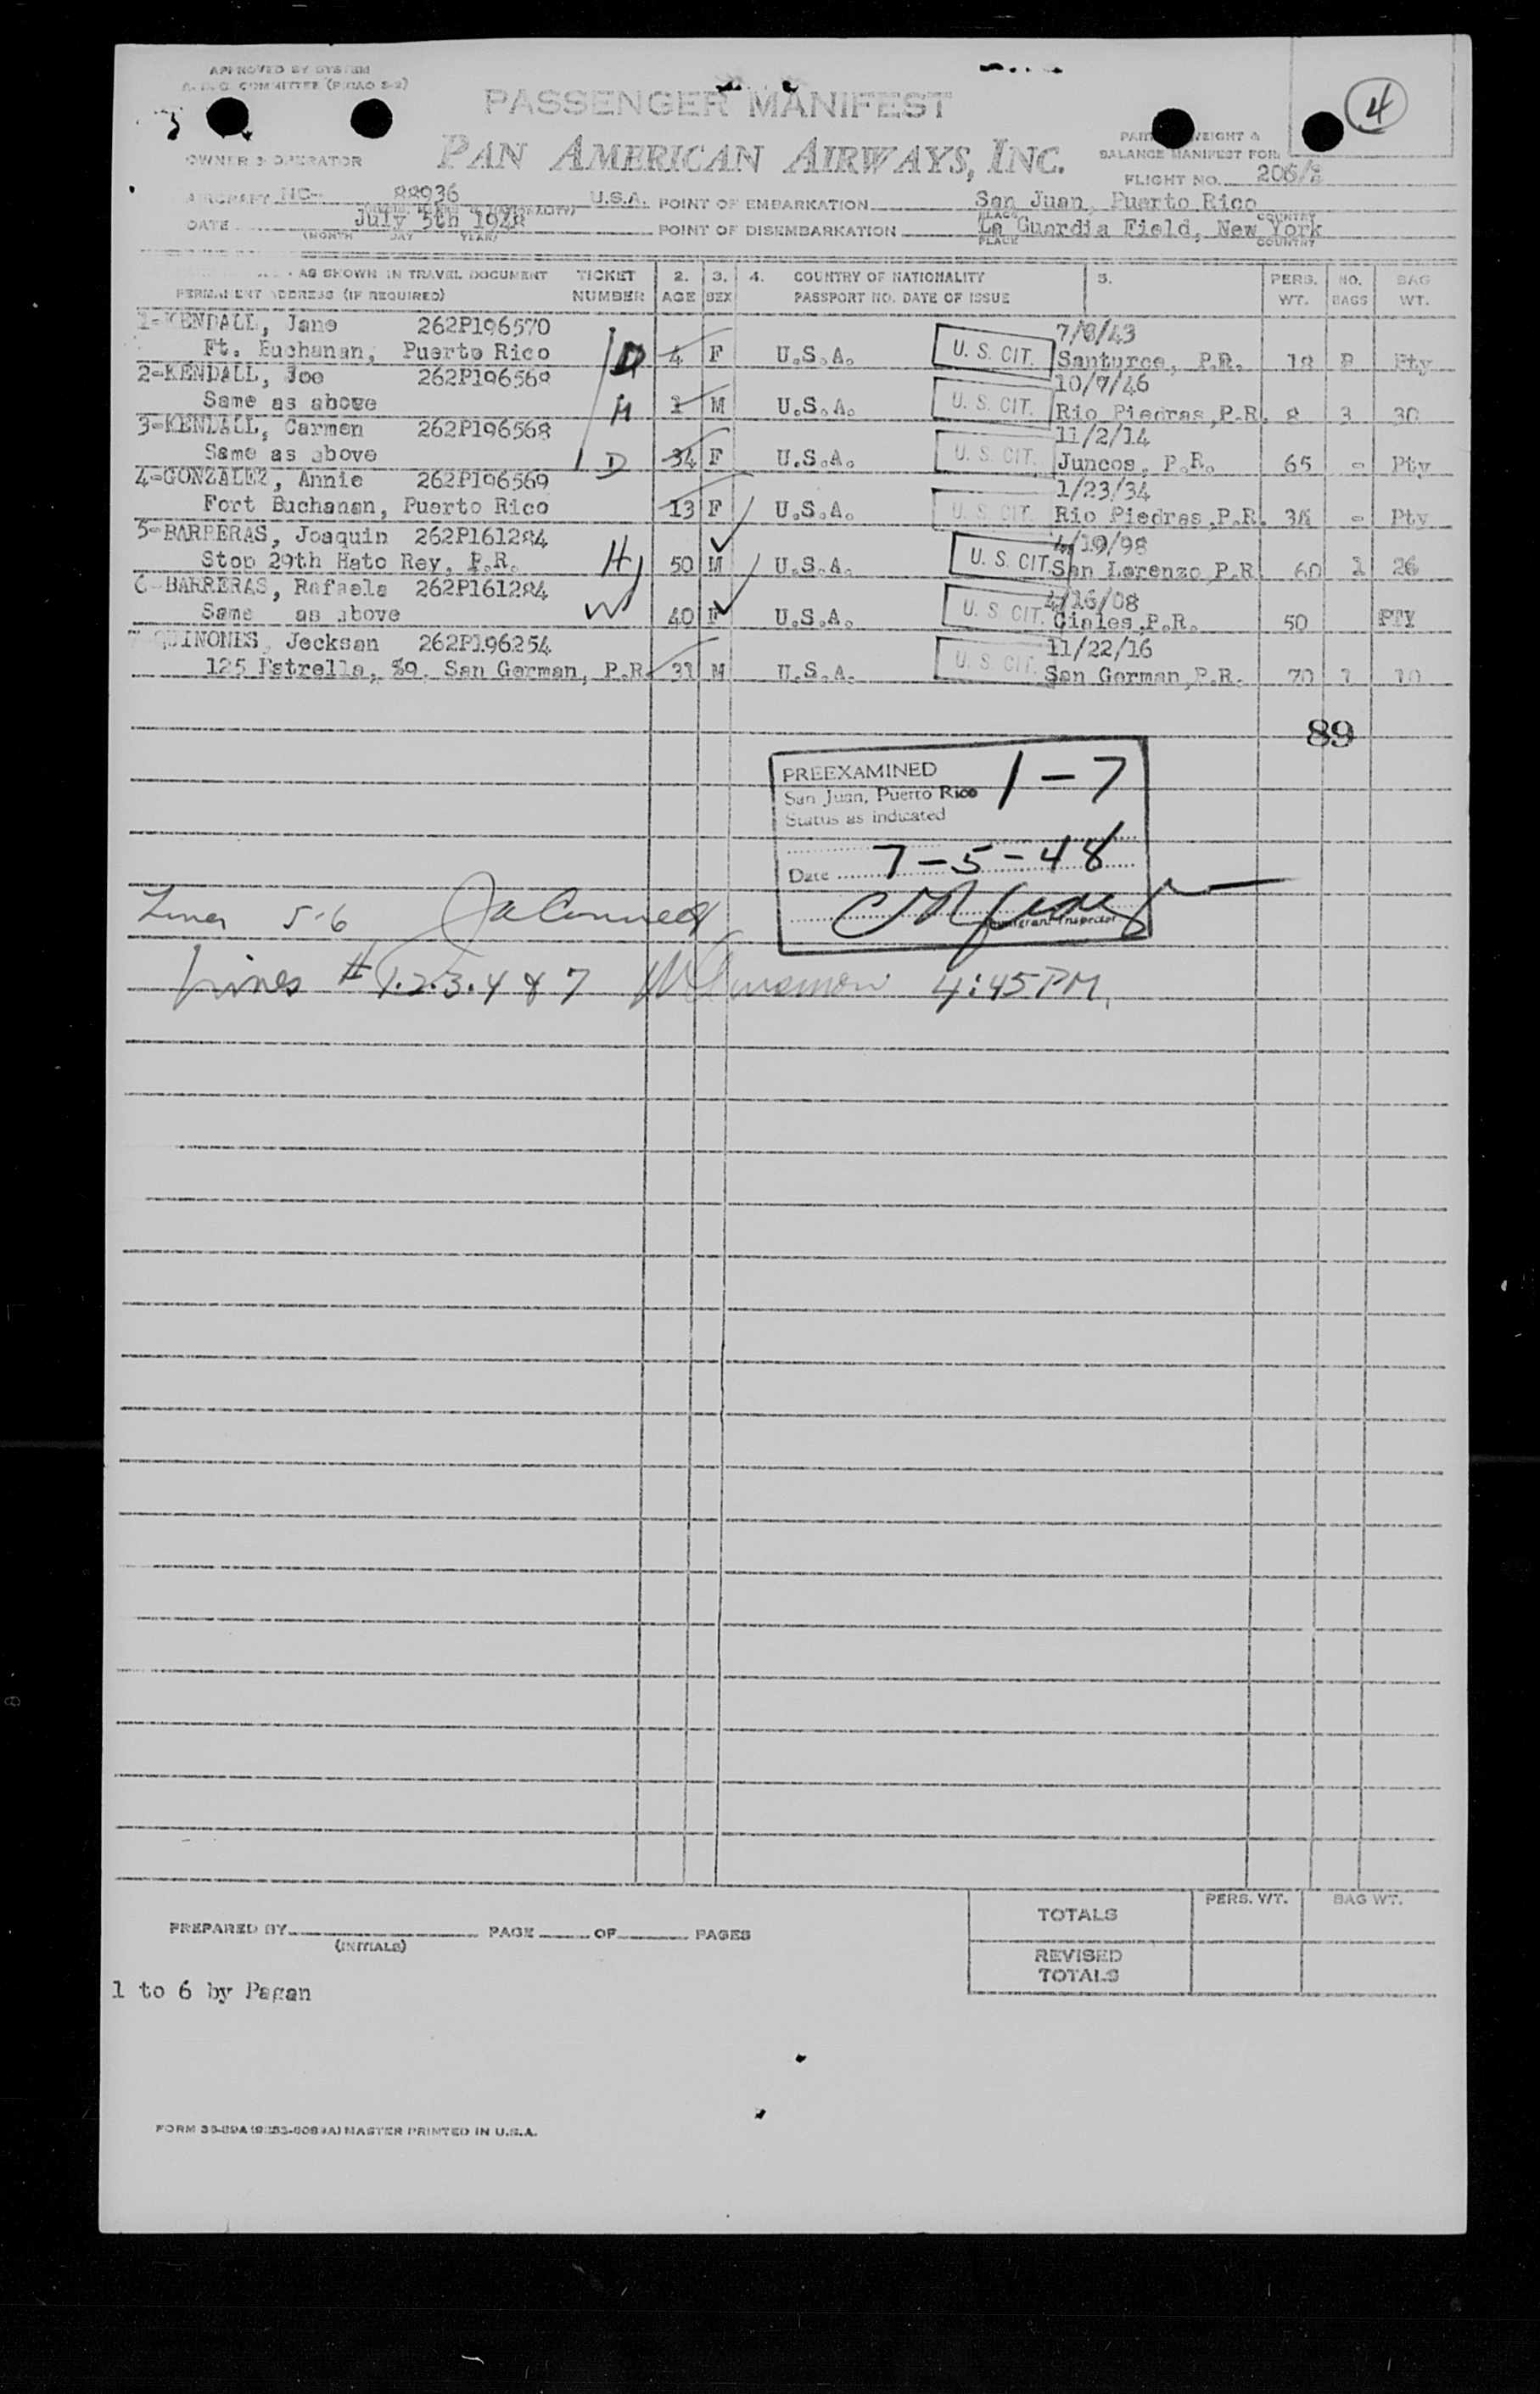 APPROVED BY SYSTEM
COMMITTEE
PASSENGER MANIFEST
4
OWNER & OPERATOR
PAN AMERICAN AIRWAYS, INC.
WEIGHT &
BALANCE MANIFEST FOR
FLIGHT NO.
AIRCRAFT NC- 88936 U.S.A. POINT OF EMBARKATION San Juan, Puerto Rico
PLACE COUNTRY
DATE July 5th 1948 POINT OF DISEMBARKATION La Guardia Field, New York
(MONTH DAY YEAR) PLACE COUNTRY
AS SHOWN IN TRAVEL DOCUMENT TICKET 2. 3. 4. COUNTRY OF NATIONALITY 5. PERS. NO. BAG
PERMANENT ADDRESS (IF REQUIRED) NUMBER AGE SEX PASSPORT NO. DATE OF ISSUE WT. BAGS WT.
1-KENDALL, Jane 262P196570 7/8/43
Ft. Buchanan, Puerto Rico D 4 F U.S.A. U. S. CIT. Santurce, P.R. 18 Pty
2-KENDALL, Joe 262P196569 10/7/46
Same as above M 1 M U.S.A. U. S. CIT. Rio Piedras,P.R. 8 3 30
3-KENDALL, Carmen 262P196568 11/2/14
Same as above D 34 F U.S.A. U. S. CIT. Juncos, P.R. 65 - Pty
4-GONZALEZ, Annie 262P196569 1/23/34
Fort Buchanan, Puerto Rico 13 F U.S.A. U. S. CIT. Rio Piedras,P.R. - Pty
5-BARRERAS, Joaquin 262P161284 4/19/98
Stop 29th Hato Rey, P.R. H 50 M U.S.A. U. S. CIT. San Lorenzo,P.R 60 1 26
6-BARRERAS, Rafaela 262P161284 4/16/08
Same as above W 40 F U.S.A. U. S. CIT. Ciales,P.R. 50 PTY
7-QUINONES, Jecksan 262P196254 11/22/16
125 Estrella, San German, P.R. 31 M U.S.A. U. S. CIT. San German,P.R. 70 1 10
89
PREEXAMINED 1-7
San Juan, Puerto Rico
Status as indicated
Date 7-5-48
Immigrant Inspector
5-6
Lines # 1.2.3.4 & 7 4:45PM.
PREPARED BY PAGE OF PAGES
(INITIALS)
TOTALS PERS. WT. BAG WT.
REVISED
TOTALS
1 to 6 by Pagan
MASTER PRINTED IN U.S.A.